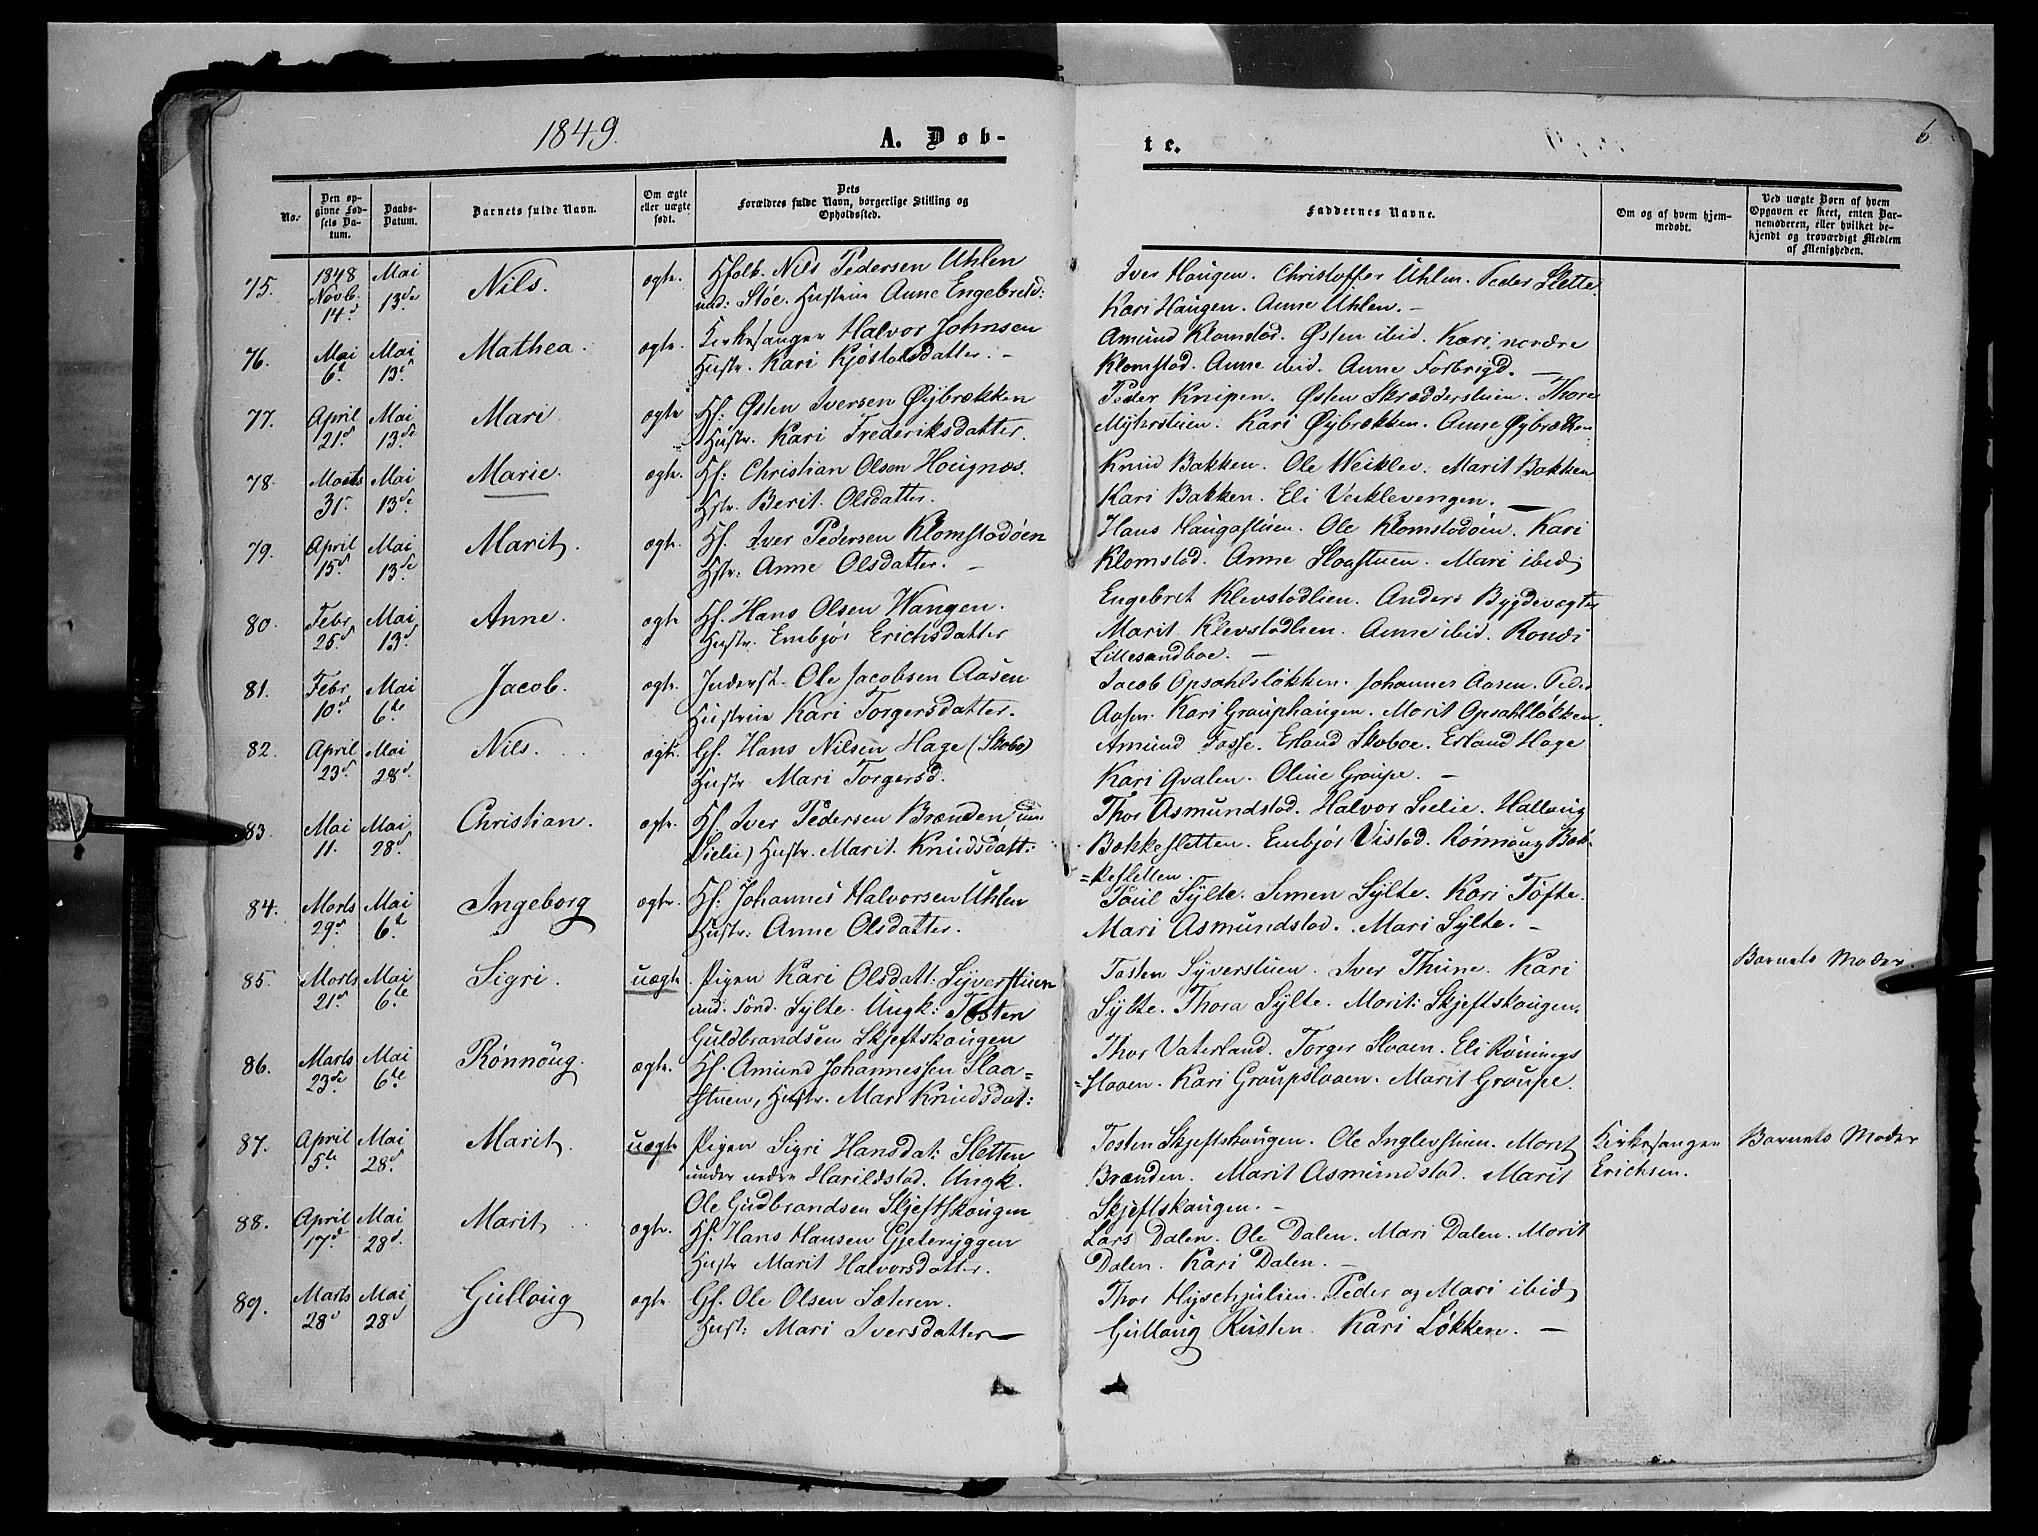 1849.
A. Døb-
te.
6
No.
Den opgivne Fødsels Datum.
Daabs-Datum.
Barnets fulde Navn.
Om ægte eller uægte født.
Dets Forældres fulde Navn, borgerlige Stilling og Opholdssted.
Faddernes Navne.
Om og af hvem hjemmedøbt.
Ved uægte Børn af hvem Opgaven er skeet, enten Barnemoderen, eller hvilket bekjendt og troværdigt Medlem af Menigheden.
75. 1848 Novb. 14d Mai 13de Nils. ægte. Hfolk. Nils Pedersen Uhlen
und: Sløe. Hustrue Anne Engebretsd:
Iver Haugen. Christoffer Uhlen. Peder Slette.
Kari Haugen. Anne Uhlen. —
76. Mai 6te Mai 13de Mathea. ægte. Kirkesanger Halvor Johnsen
Hustr. Kari Kjøstolsdatter. —
Amund Klomstad. Østen ibid. Kari nordre
Klomstad. Anne ibid. Anne Forbrigd. —
77. April 21de Mai 13de Mari. ægte Hf: Østen Iversen Øybrækken
Hustr. Kari Frederiksdatter.
Peder Knipen. Østen Skrædderstuen. Thore
Myhrstuen. Kari Øybrækken. Anne Øybrækken
78. Marts 31. Mai 13de Marie. ægte. Hf: Christian Olsen Hougnæs.
Hstr. Berit Olsdatter.
Knud Bakken. Ole Weiklev. Marit Bakken
Kari Bakken. Eli Veiklevengen. —
79. April 15d Mai 13de Marit. ægte. Hf. Iver Pedersen Klomstadøen
Hstr: Anne Olsdatter. —
Hans Haugastuen. Ole Klomstadøen. Kari
Klomstad. Anne Sloastuen. Mari ibid
80. Febr 25d Mai 13d Anne. ægte Hf. Hans Olsen Wangen.
Hustr. Embjør Erichsdatter
Engebret Klevstadlien. Anders Bygdevægter
Marit Klevstadlien. Anne ibid. Rondi
Lillesandboe. —
81. Febr 10d Mai 6te Jacob. ægte. Inderst. Ole Jacobsen Aasen
Hustrue Kari Torgersdatter.
Jacob Opsahlsløkken. Johannes Aasen. Peder
Aasen. Kari Grauphaugen. Marit Opsahlløkken.
82. April 23d. Mai 28d Nils. ægte. Gf. Hans Nilsen Hage (Skobo)
Hustr Mari Torgersd.
Amund Fosse. Erland Skoboe. Erland Hage
Kari Qvalen. Oline Graupe. —
83. Mai 11. Mai 28d Christian. ægte. Hf Iver Pedersen Brænden und
Sielie) Hustr. Marit Knudsdatt:
Thor Asmundstad. Halvor Sielie. Halloug
Bakkesletten. Embjør Vistad. Rønnoug Bak-
=kesletten.
84. Marts 29d Mai 6te Ingeborg ægte. Hf: Johannes Halvorsen Uhlen
Hustr: Anne Olsdatter.
Poul Sylte. Simen Sylte. Kari Tofte.
Mari Asmundstad. Mari Sylte. —
85. Marts 21d Mai 6te Sigri. uægte. Pigen Kari Olsdatt: Syverstuen
und: sönd. Sylte. Ungk: Tosten
Guldbrandsen Skjeftskaugen
Tosten Syverstuen. Iver Thune. Kari
Sylte. Thora Sylte. Marit: Skjeftskaugen.
Barnets Moder.
86. Marts 23de Mai 6te Rønnoug. ægte. Hf. Amund Johannessen Slaa=
stuen, Hustr. Mari Knudsdat:
Thor Vaterland. Torger Sloaen. Eli Rønings
=sloaen. Kari Graupsloaen. Marit Graupe.
87. April 5te Mai 28d Marit. uægte Pigen Sigri Hansdat: Sletten
under nedre Harildstad. Ungk.
Ole Gudbrandsen Skjeftskaugen
Tosten Skjeftskaugen. Ole Inglevstuen. Marit
Brænden. Marit Asmundstad. Marit
Skjeftskaugen. —
Kirkesanger
Erichsen.
Barnets Moder
88. April 17d Mai 28d. Marit. ægte. Hf: Hans Hansen Gjeteryggen
Hustr Marit Halvorsdatter.
Lars Dalen. Ole Dalen. Mari Dalen. Marit
Dalen. Kari Dalen. —
89. Marts 28d Mai 28d Gulloug ægte Gf. Ole Olsen Sæteren.
Hust: Mari Iversdatter —
Thor Peder og Mari ibid
Gulloug Rusten. Kari Løkken. —